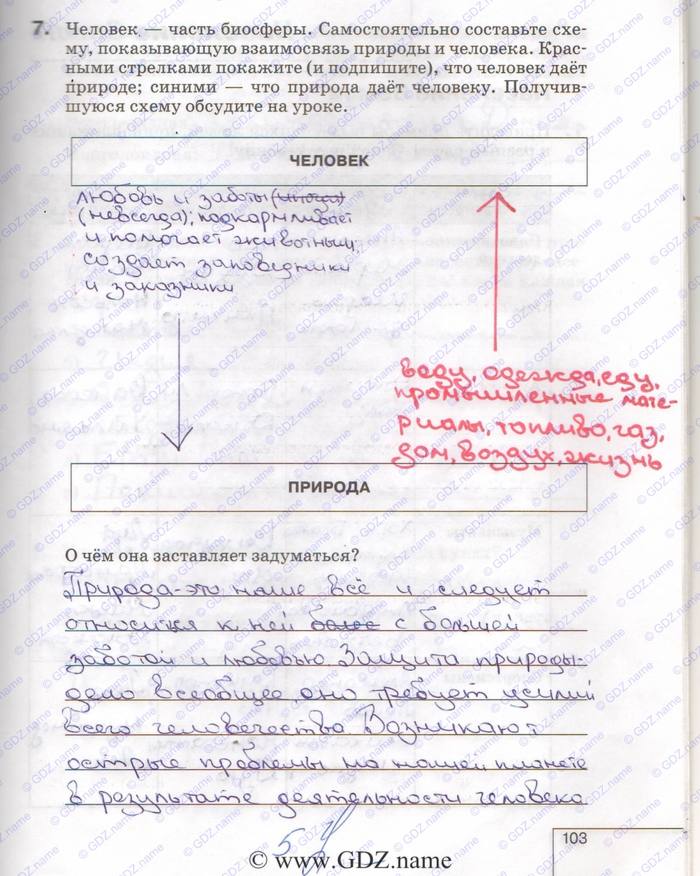 7. Человек — часть биосферы. Самостоятельно составьте схе-
му, показывающую взаимосвязь природы и человека. Крас-
ными стрелками покажите (и подпишите), что человек даёт
природе; синими — что природа даёт человеку. Получив-
шуюся схему обсудите на уроке.
ЧЕЛОВЕК
любовь и заботы (иногда)
(невсегда); подкармливает
и помогает животным,
создает заповедники
и заказники
воду, одежда, еду,
промышленные мате-
риалы, топливо, газ,
дом, воздух, жизнь
ПРИРОДА
О чём она заставляет задуматься?
Природа-это наше всё и следует
относится к ней более с большей
заботой и любовью. Защита природы-
дело всеобщее, оно требует усилий
всего человечества. Возникают
острые проблемы на нашей планете
в результате деятельности человека
5
103
© www.GDZ.name